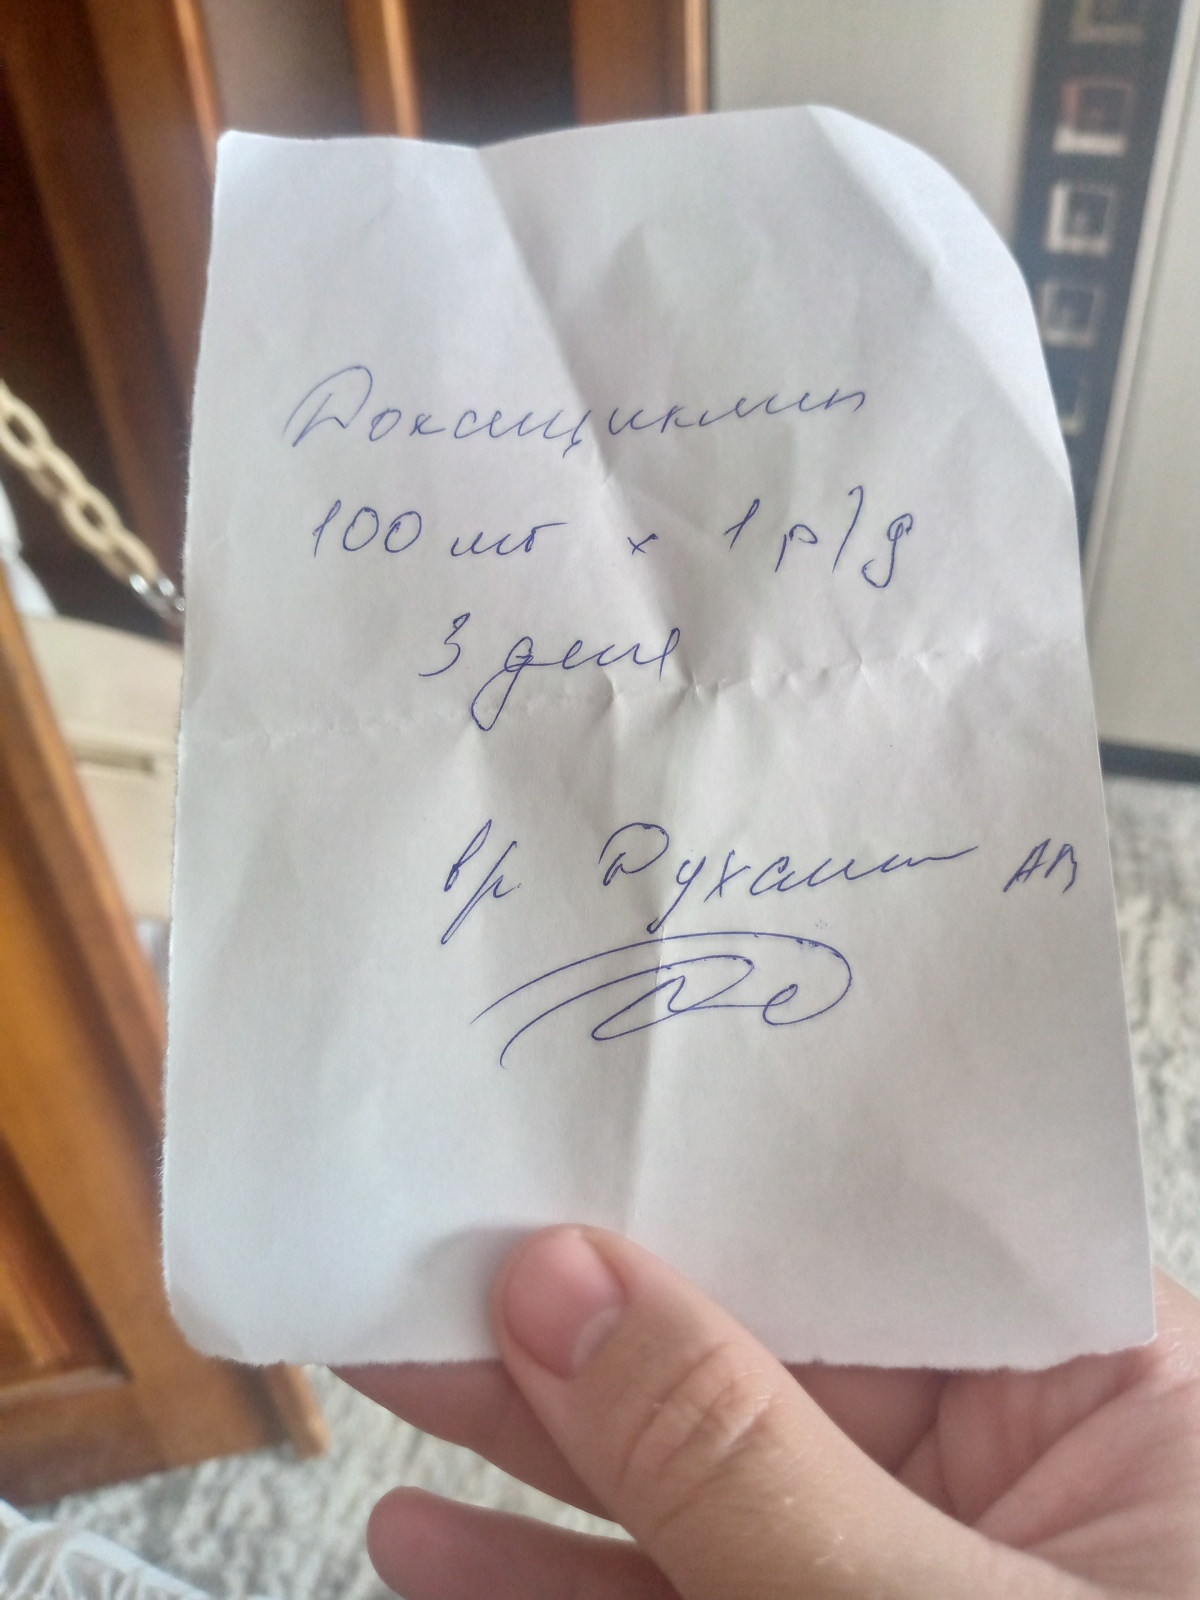 Доксициклин
100 мг x 1 р/д
3 дня
вр. Духанин АВ